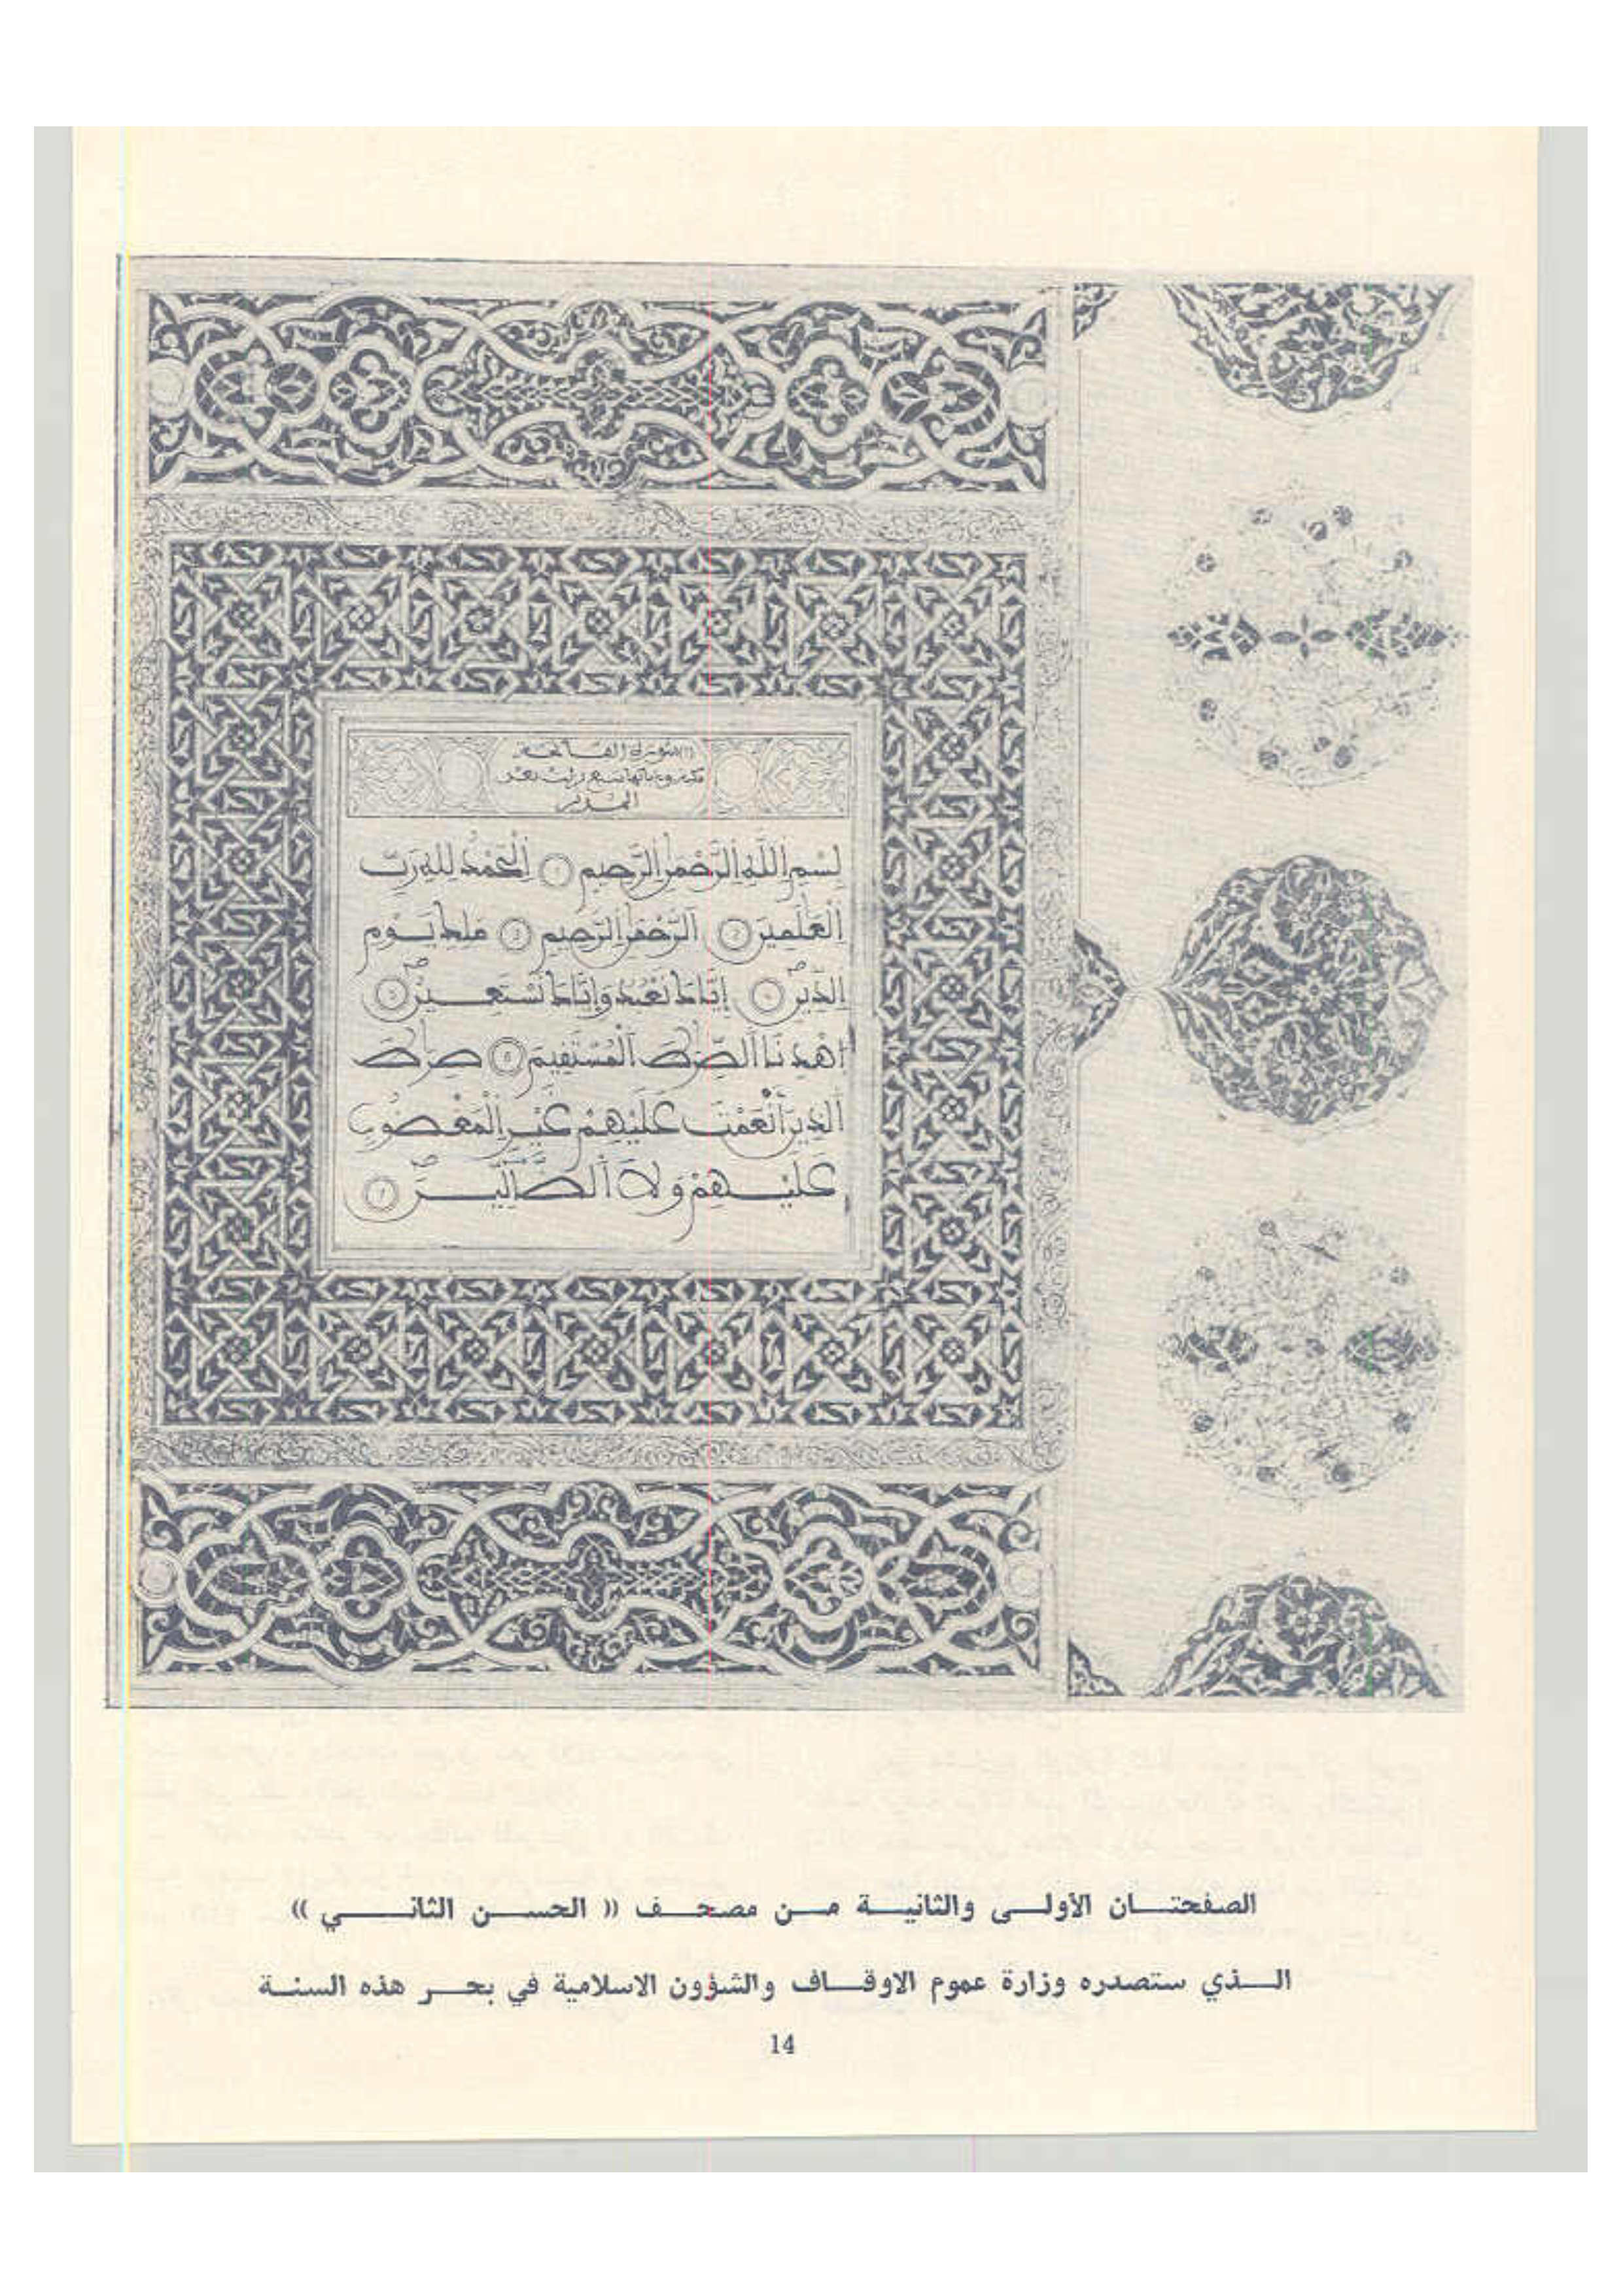 (1) سورة الفاتحة
مكية وءاياتها سبع نزلت بعد
المدثر
بِسْمِ اللَّهِ الرَّحْمَٰنِ الرَّحِيمِ ① اَلْحَمْدُ لِلهِ رَبِّ
اِلْعَٰلَمِينَ ② اَلرَّحْمَٰنِ اِلرَّحِيمِ ③ مَلِكِ يَوْمِ
اِلدِّينِ ④ إِيَّاكَ نَعْبُدُ وَإِيَّاكَ نَسْتَعِينُ ⑤
اَهْدِنَا اَلصِّرَٰطَ اَلْمُسْتَقِيمَ ⑥ صِرَٰطَ
اَلذِينَ أَنْعَمْتَ عَلَيْهِمْ غَيْرِ اِلْمَغْضُوبِ
عَلَيْهِمْ وَلَا اَلضَّآلِّينَ ⑦
الصفحتان الاولى والثانية من مصحف (( الحسن الثاني ))
الذي ستصدره وزارة عموم الاوقاف والشؤون الاسلامية في بحر هذه السنة
14